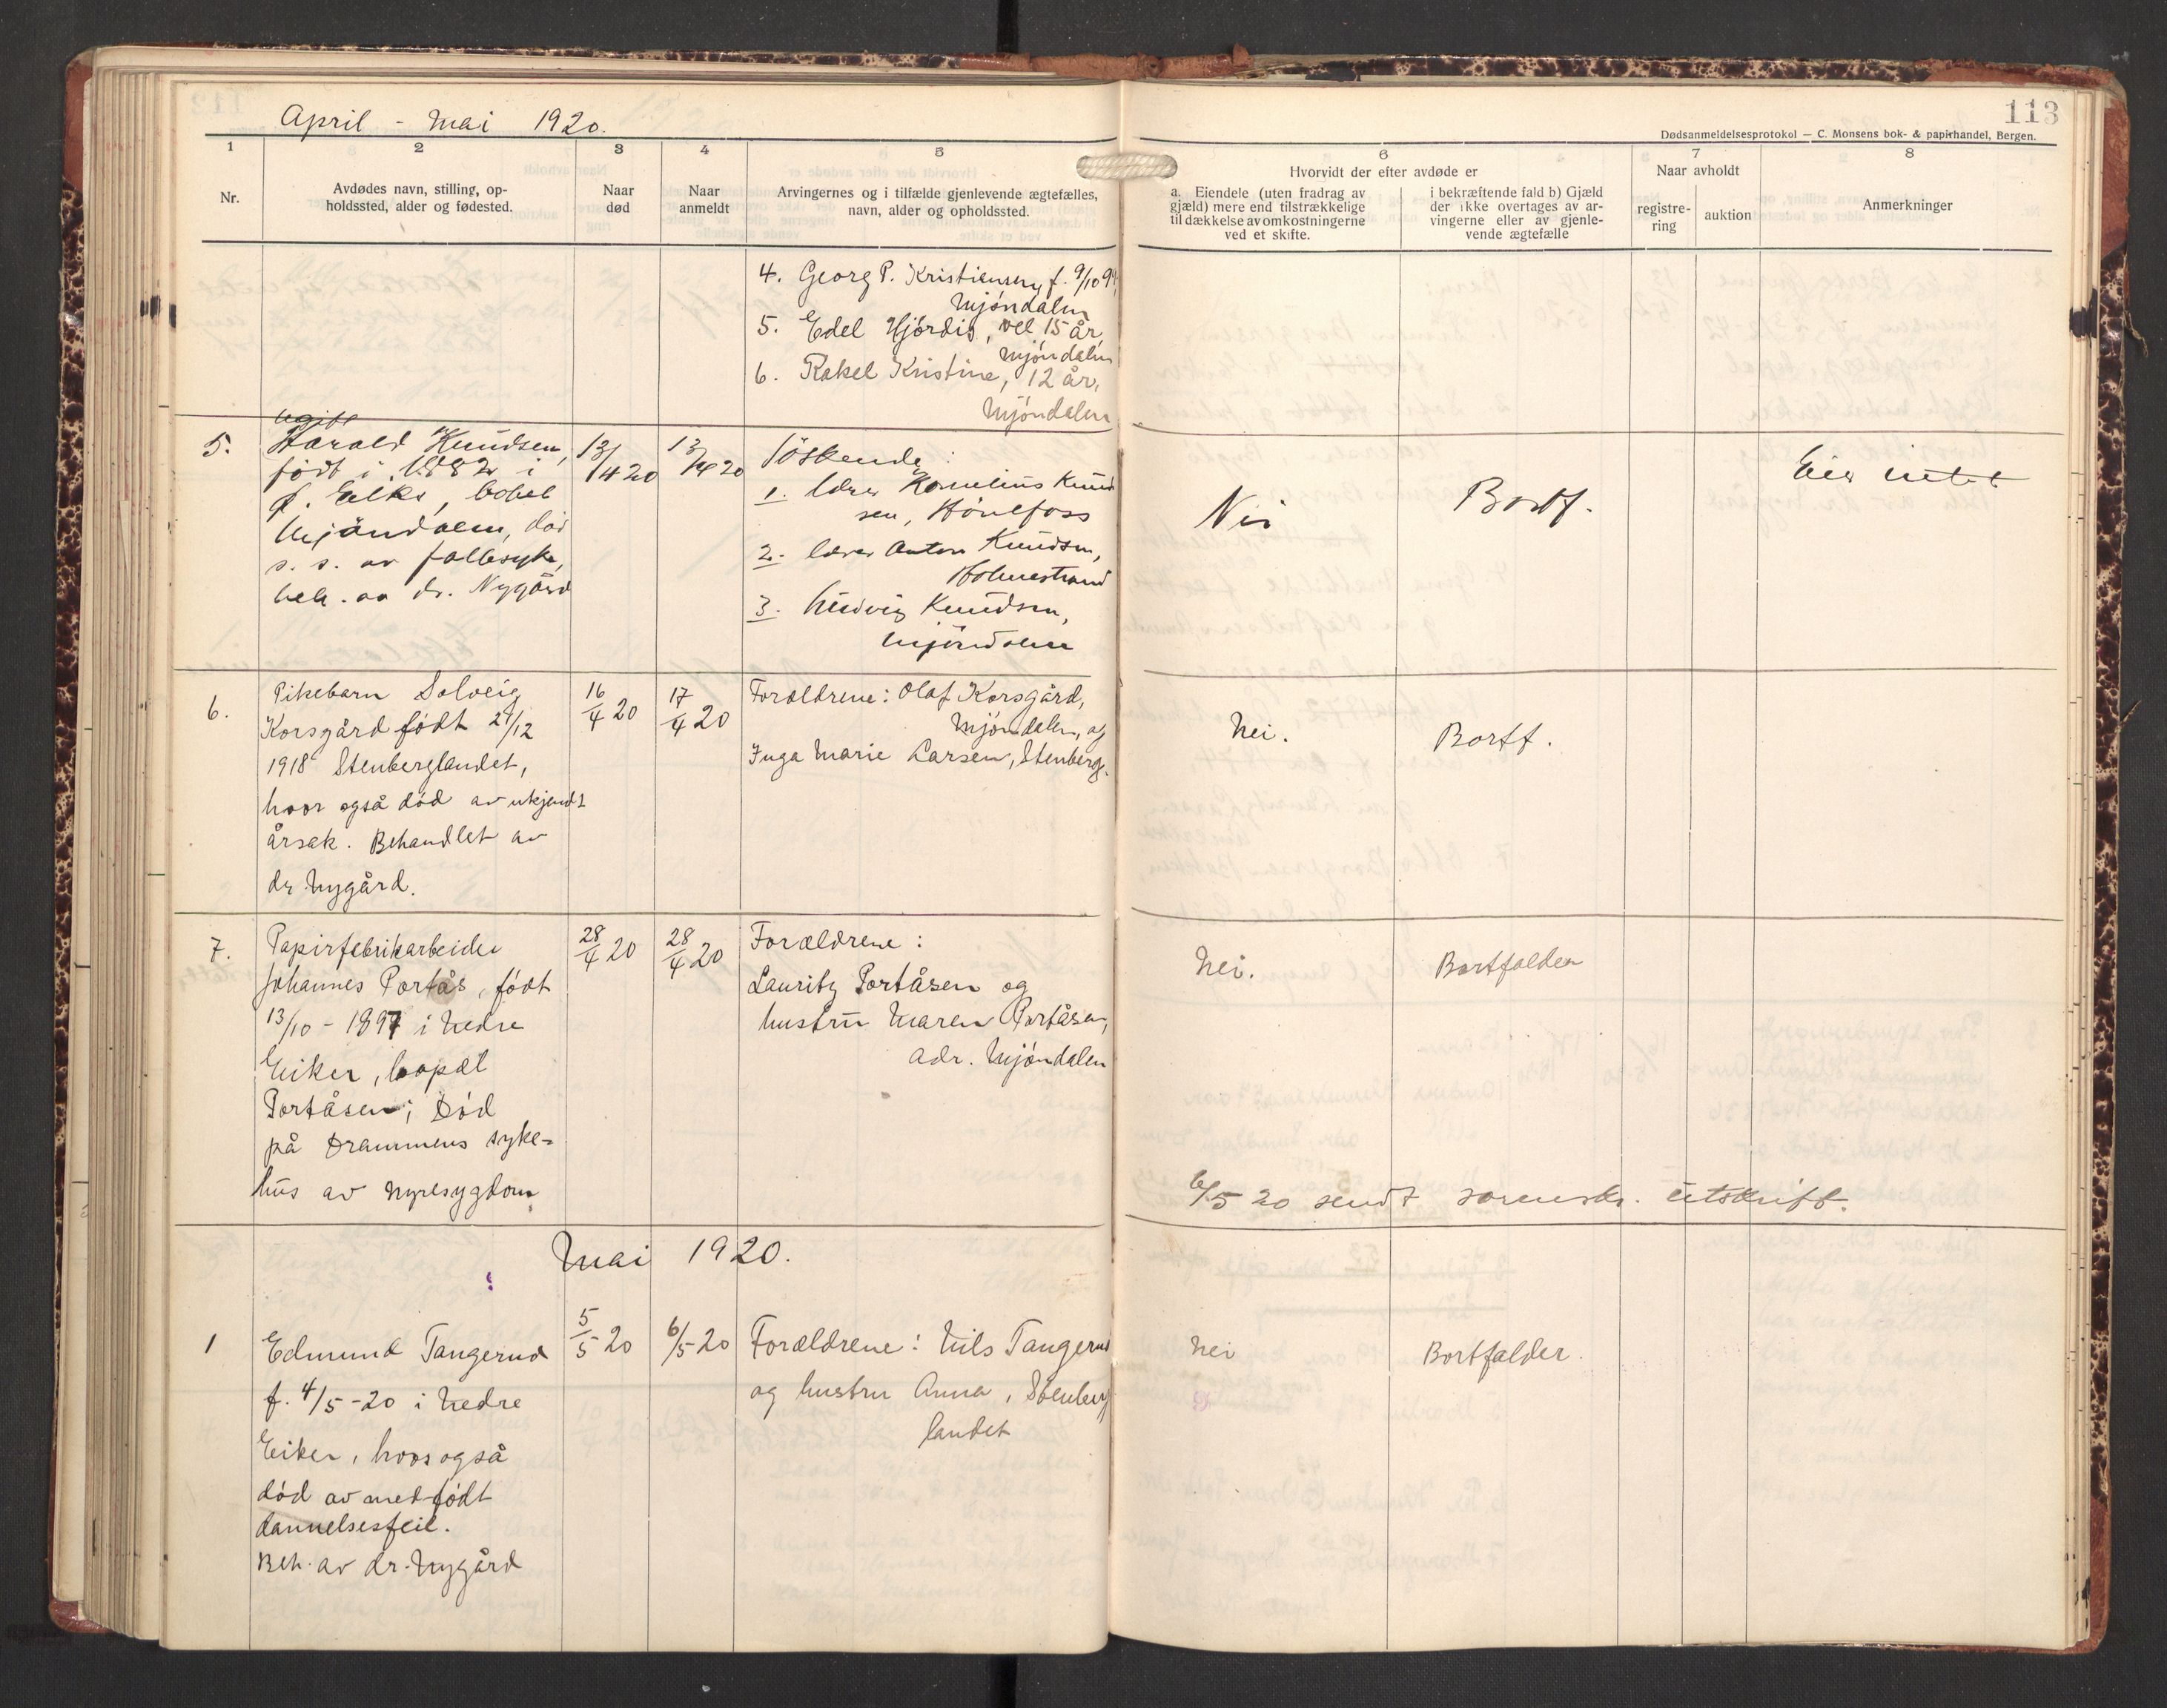 April - Mai 1920.
113
Dødsanmeldelsesprotokol — C. Monsens bok- & papirhandel, Bergen.
1 2 3 4 5 6 7 8
Nr.
Avdødes navn, stilling, op-
holdssted, alder og fødested.
Naar
død
Naar
anmeldt
Arvingernes og i tilfælde gjenlevende ægtefælles,
navn, alder og opholdssted.
Hvorvidt der efter avdøde er
a. Eiendele (uten fradrag av
gjæld) mere end tilstrækkelige
til dækkelse av omkostningerne
ved et skifte.
i bekræftende fald b) Gjæld
der ikke overtages av ar-
vingerne eller av gjenle-
vende ægtefælle
Naar avholdt
registre-
ring
auktion
Anmerkninger
4. Georg P. Kristiensen, f. 9/10
Mjøndalen
5. Edel Hjørdis, vel 15 år,
Mjøndalen
6. Rakel Kristine, 12 år,
Mjøndalen
5.
ugift
Harald Knudsen,
født i 1882 i
Ø. Eiker, bopæl
Mjøndalen, død
s. s. av faldesyke,
beh. av dr. Nygård
13/4 20
13/4 20
Søskende:
1. Lærer Kornelius Knud
sen, Hønefoss
2. Lærer Anton Knudsen,
Holmestrand
3. Ludvig Knudsen,
Mjøndalen
Nei
Bortf.
Eier intet
6.
Pikebarn Solveig
Korsgård født 21/12
1918 Stenberglandet,
hvor også død av ukjendt
årsak. Behandlet av
dr. Nygård.
16/4 20
17/4 20
Forældrene: Olaf Korsgård,
Mjøndalen, og
Inga Marie Larsen, Stenberg.
Nei.
Bortf.
7.
Papirfabrikarbeider
Johannes Portås, født
13/10 - 1897 i Nedre
Eiker, bopæl
Portåsen; Død
på Drammens syke-
hus av nyresygdom.
28/4 20
28/4 20
Forældrene:
Lauritz Portåsen og
hustru Maren Portåsen,
adr. Mjøndalen
Nei.
Bortfalder
6/5 20 sendt sorenskr. utskrift.
Mai 1920.
1
Edmund Tangerud
f. 4/5-20 i Nedre
Eiker, hvor også
død av medfødt
dannelsesfeil.
Beh. av dr. Nygård
5/5 20
6/5-20
Forældrene: Nils Tangerud
og hustru Anna, Stenberg
landet
Nei
Bortfalder.